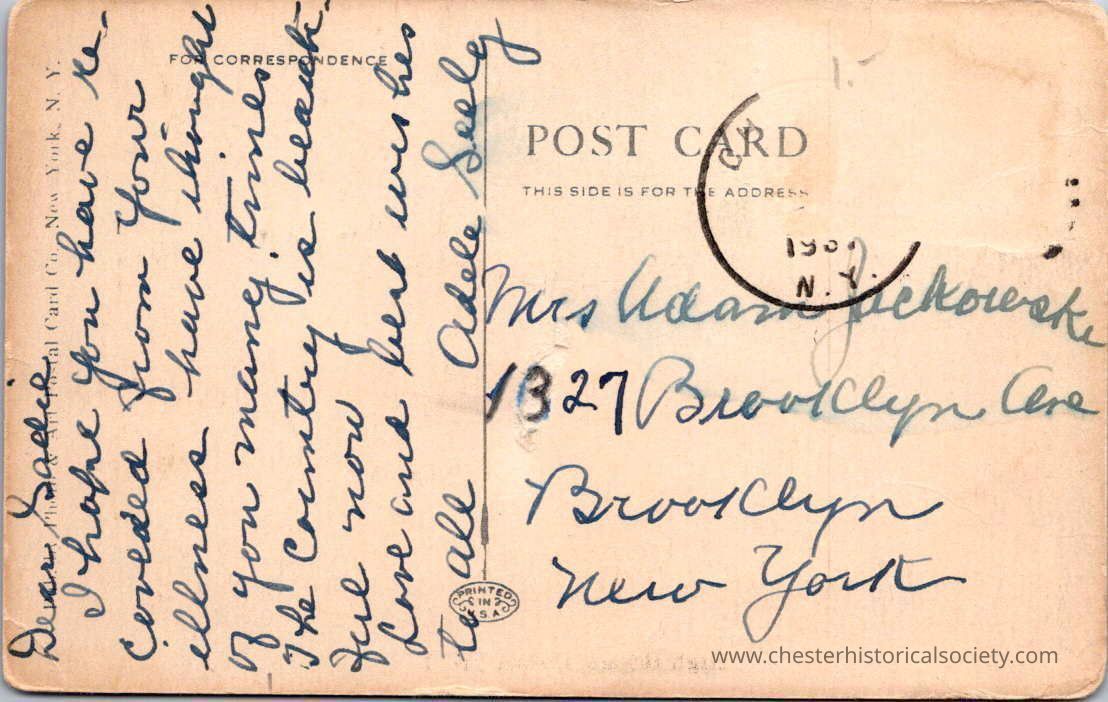 Dear Sallie
I hope you have re-
covered from your
illness have thought
of you many times
The Country is beauti-
ful now
Love and best wishes
to all Adele Seely
Photo & Art Postal Card Co. New York, N. Y.
FOR CORRESPONDENCE
POST CARD
THIS SIDE IS FOR THE ADDRESS
N. Y.
Mrs Adam Jackowski
1327 Brooklyn Ave
Brooklyn
New York
PRINTED
IN
U S A
www.chesterhistoricalsociety.com